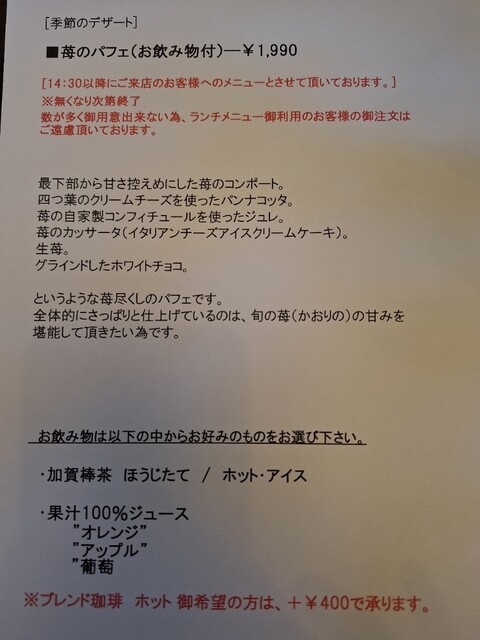 [季節のデザート]
■苺のパフェ(お飲み物付)―￥1,990
[14:30以降にご来店のお客様へのメニューとさせて頂いております。]
※無くなり次第終了
数が多く御用意出来ない為、ランチメニュー御利用のお客様の御注文は
ご遠慮頂いております。
最下部から甘さ控えめにした苺のコンポート。
四つ葉のクリームチーズを使ったパンナコッタ。
苺の自家製コンフィチュールを使ったジュレ。
苺のカッサータ(イタリアンチーズアイスクリームケーキ)。
生苺。
グラインドしたホワイトチョコ。
というような苺尽くしのパフェです。
全体的にさっぱりと仕上げているのは、旬の苺(かおりの)の甘みを
堪能して頂きたい為です。
お飲み物は以下の中からお好みのものをお選び下さい。
・加賀棒茶 ほうじたて / ホット・アイス
・果汁100%ジュース
"オレンジ"
"アップル"
"葡萄
※ブレンド珈琲 ホット 御希望の方は、＋￥400で承ります。